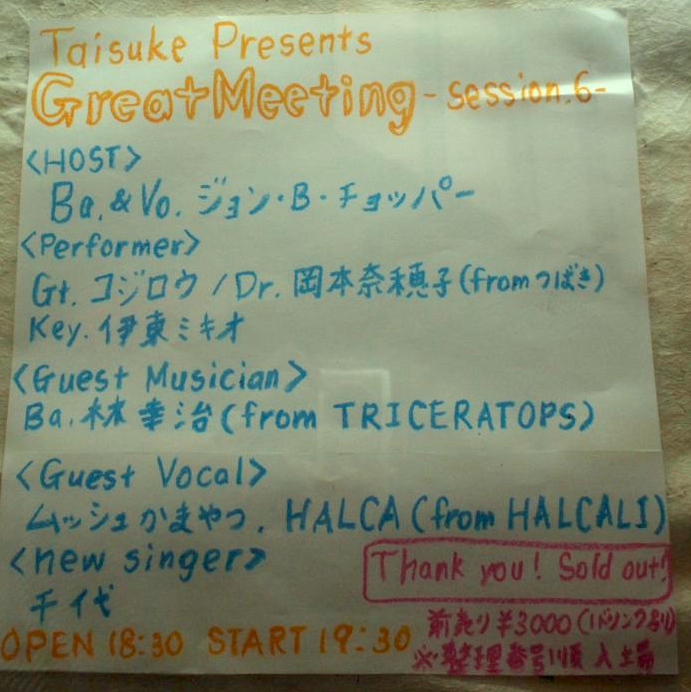 Taisuke Presents
GreatMeeting - session.6-
<HOST>
Ba.&Vo. ジョン・B・チョッパー
<Performer>
Gt. コジロウ / Dr. 岡本奈穂子(from つばき)
Key. 伊東ミキオ
<Guest Musician>
Ba. 林幸治(from TRICERATOPS)
<Guest Vocal>
ムッシュかまやつ, HALCA (from HALCALI)
<new singer>
千代
Thank you! Sold out!
OPEN 18:30 START 19:30
前売り ¥3000 (1ドリンクあり)
※整理番号順入場